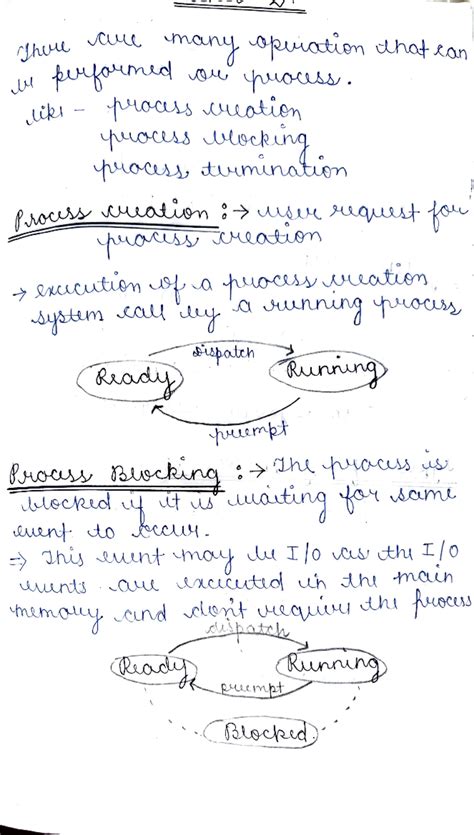 There are many opiration that can
be performed on process.
like - process creation
process blocking
process termination
Process creation : → user request for
process creation
→ execution of a process creation
system call by a running process
Dispatch
Ready
Running
preempt
Process Blocking : → The process is
blocked if it is waiting for same
event to occur.
⇒ This event may be I/O as the I/O
events are executed in the main
memory and don't require the process
dispatch
Ready
Running
preempt
Blocked